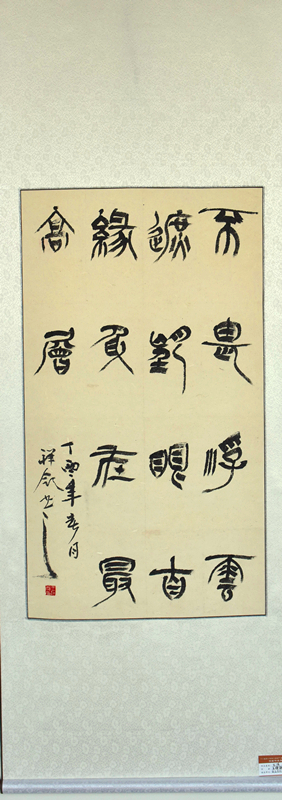 不畏浮雲
遮望眼自
緣身在最
高層
丁酉年春月
祥书